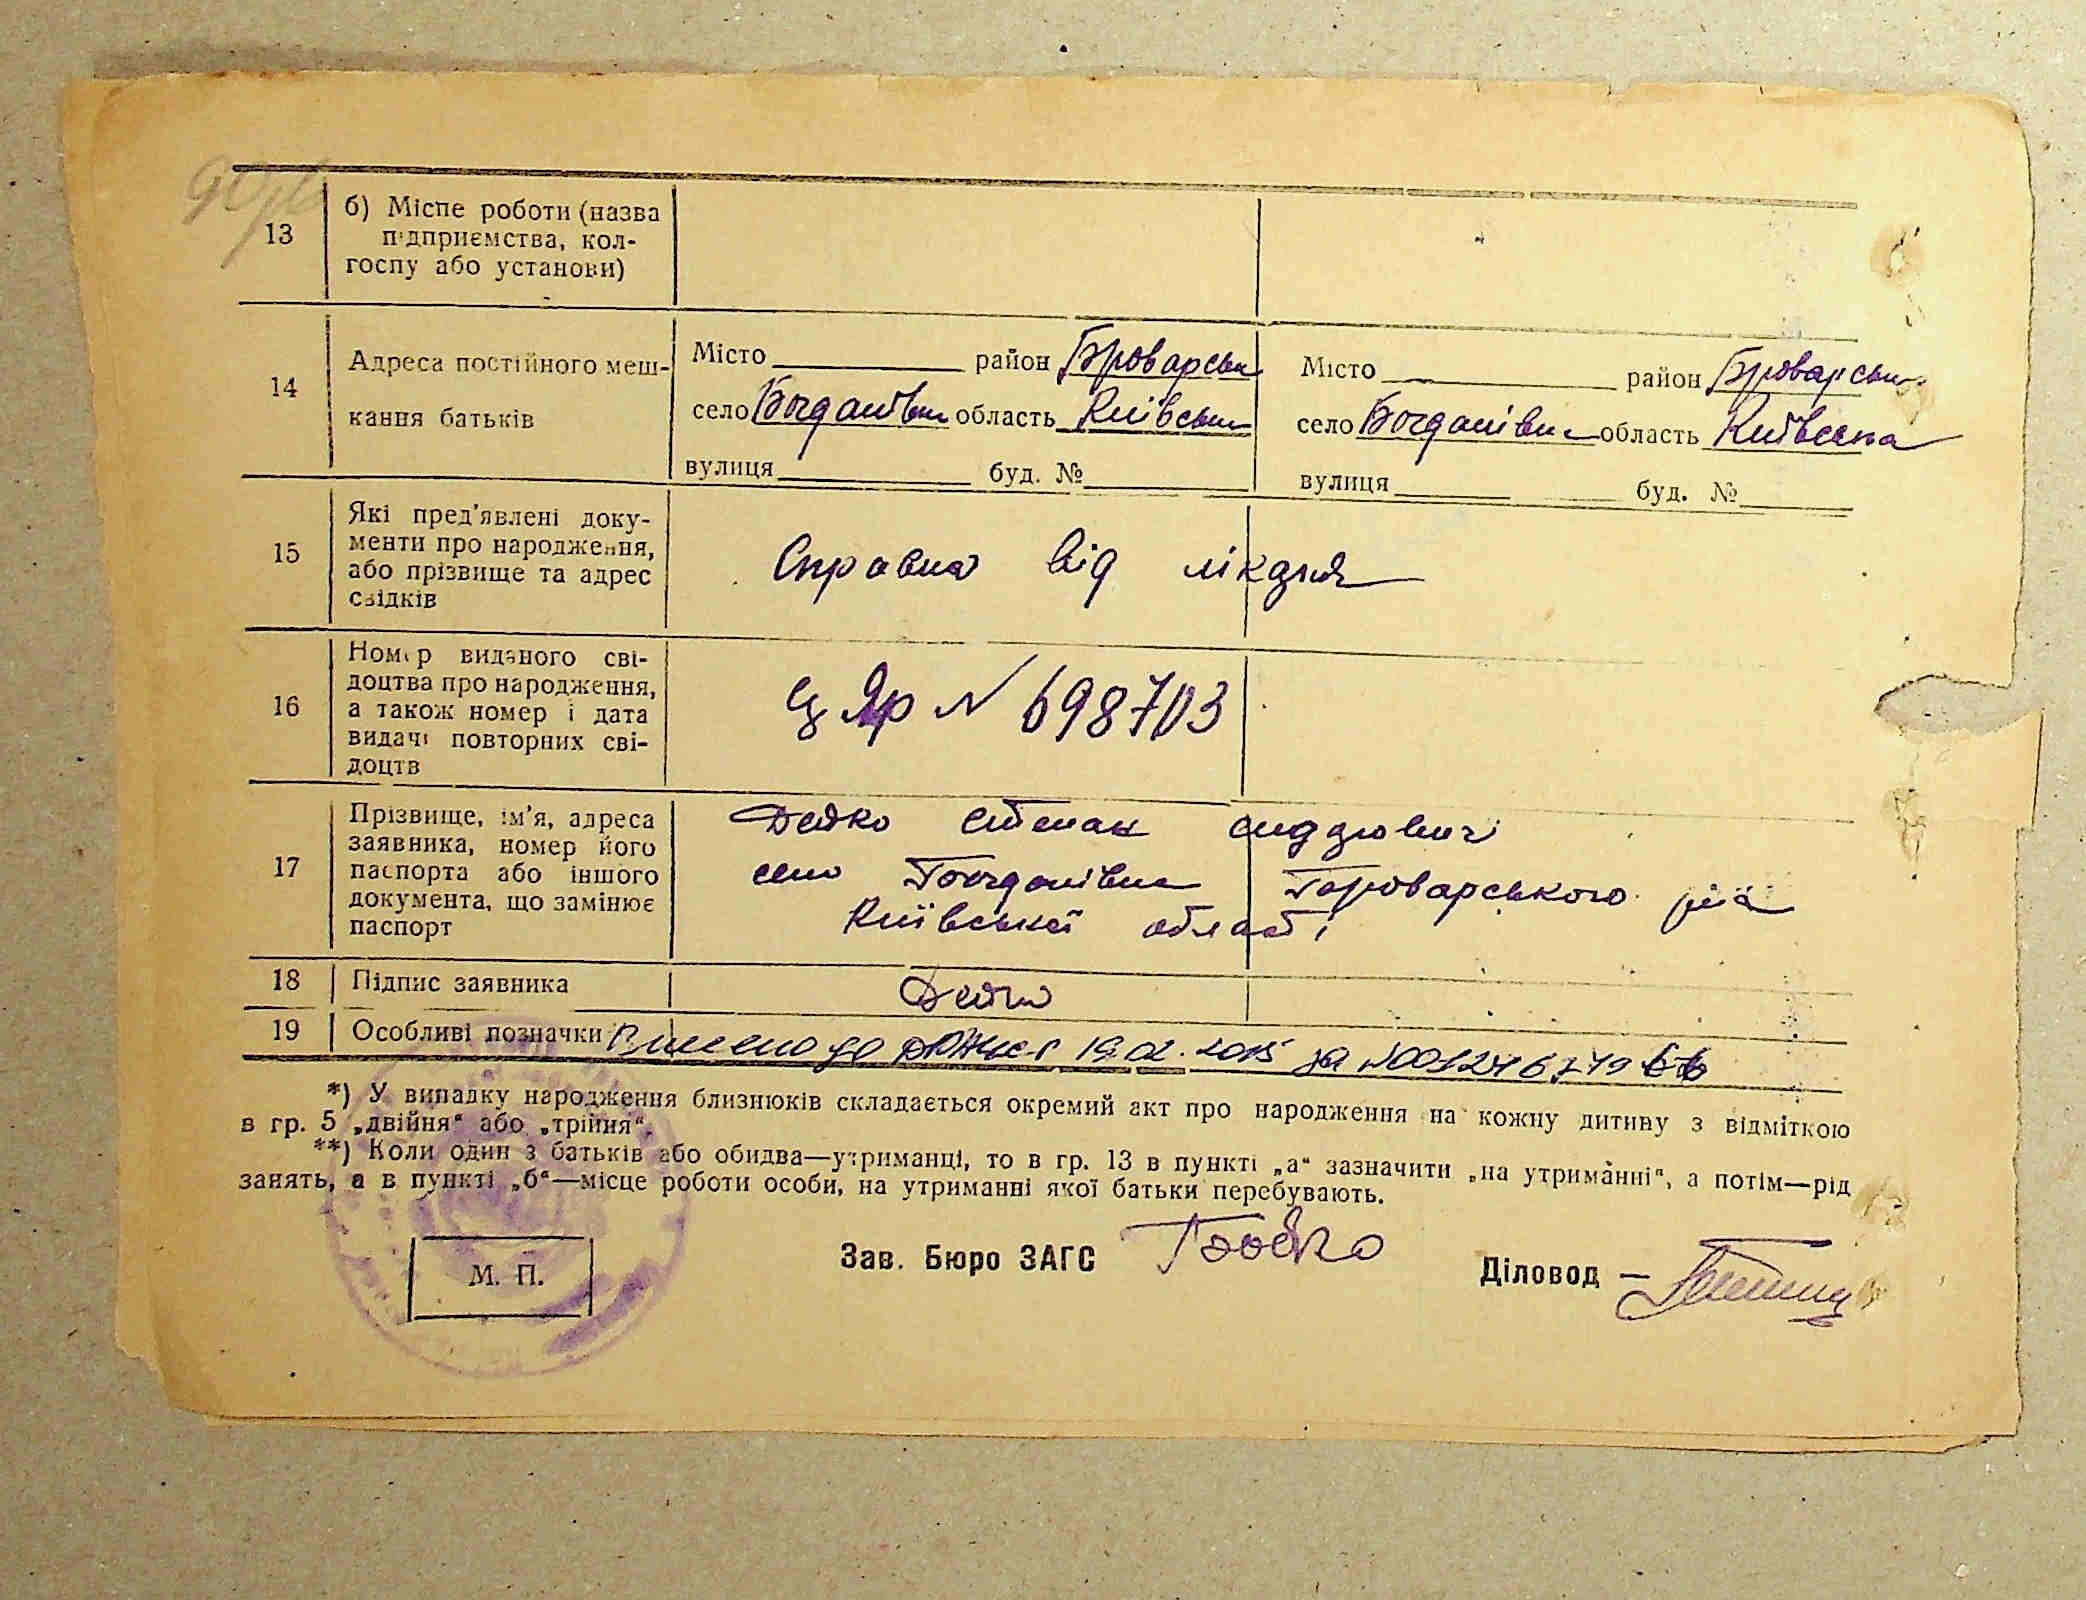 13
б) Місце роботи (назва
підприємства, кол-
госпу або установи)
14
Адреса постійного меш-
кання батьків
Місто район Броварськ
село Богданівка область Київська
вулиця буд. №
Місто район Броварськ
село Богданівка область Київська
вулиця буд. №
15
Які пред'явлені доку-
менти про народження,
або прізвище та адрес
свідків
Справка від лікаря
16
Номер виданого сві-
доцтва про народження,
а також номер і дата
видачі повторних сві-
доцтв
ЯР N 698703
17
Прізвище, ім'я, адреса
заявника, номер його
паспорта або іншого
документа, що замінює
паспорт
Дейко Степан
село Богданівка Броварського р-на
Київської області
18
Підпис заявника
Дейко
19
Особливі позначки Внесено до ДРАЦСГ 19.02.2015 за
*) У випадку народження близнюків складається окремий акт про народження на кожну дитину з відміткою
в гр. 5 „двійня“ або „трійня“.
**) Коли один з батьків або обидва—утриманці, то в гр. 13 в пункті „а“ зазначити „на утриманні“, а потім—рід
занять, а в пункті „б“—місце роботи особи, на утриманні якої батьки перебувають.
М. П.
Зав. Бюро ЗАГС
Діловод —